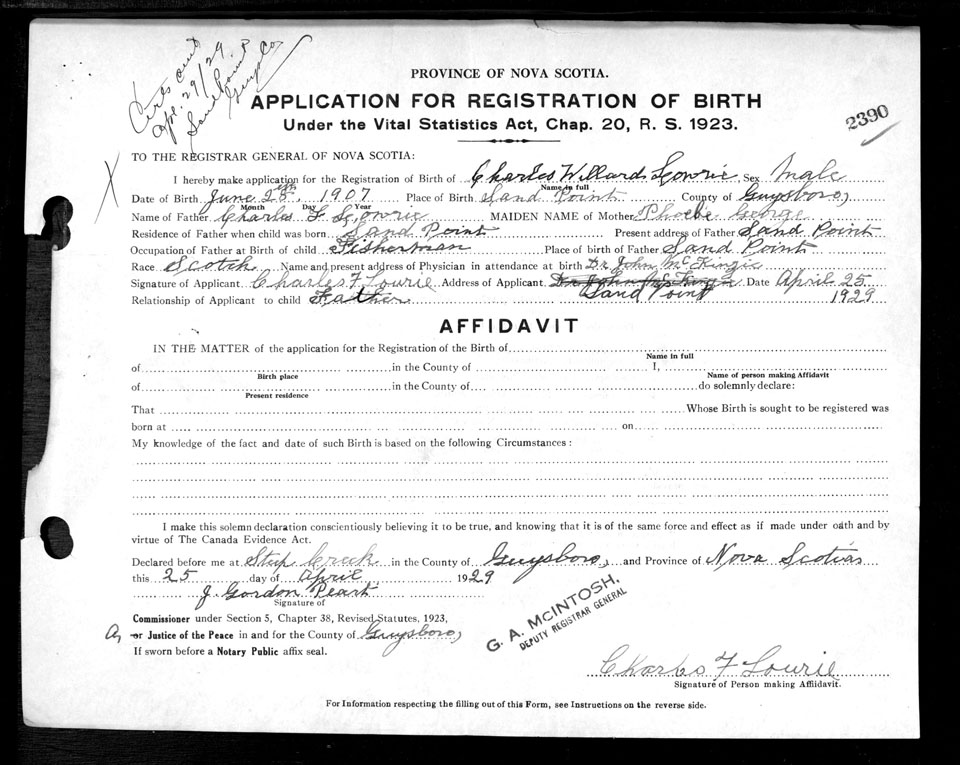 Certs out
Apr. 29/29.
Sand Point
Guys Co
PROVINCE OF NOVA SCOTIA.
APPLICATION FOR REGISTRATION OF BIRTH
Under the Vital Statistics Act, Chap. 20, R. S. 1923.
2390
X
TO THE REGISTRAR GENERAL OF NOVA SCOTIA:
I hereby make application for the Registration of Birth of Charles Willard Lowrie Sex Male
Name in full
Date of Birth June 25th, 1907 Place of Birth Sand Point County of Guysboro,
Month Day Year
Name of Father Charles F Lowrie MAIDEN NAME of Mother Phoebe George
Residence of Father when child was born Sand Point Present address of Father Sand Point
Occupation of Father at Birth of child Fisherman Place of birth of Father Sand Point
Race Scotch Name and present address of Physician in attendance at birth Dr. John McKinzie
Signature of Applicant Charles F Lowrie Address of Applicant Dr John McKinzie Date April 25
Sand Point 1929
Relationship of Applicant to child Father
AFFIDAVIT
IN THE MATTER of the application for the Registration of the Birth of
Name in full
of in the County of I,
Birth place Name of person making Affidavit
of in the County of do solemnly declare:
Present residence
That Whose Birth is sought to be registered was
born at on
My knowledge of the fact and date of such Birth is based on the following Circumstances:
I make this solemn declaration conscientiously believing it to be true, and knowing that it is of the same force and effect as if made under oath and by
virtue of The Canada Evidence Act.
Declared before me at Steep Creek in the County of Guysboro, and Province of Nova Scotia
this 25 day of April 1929
J Gordon Peart
Signature of
G. A. McINTOSH,
DEPUTY REGISTRAR GENERAL
Commissioner under Section 5, Chapter 38, Revised Statutes, 1923,
A or Justice of the Peace in and for the County of Guysboro,
If sworn before a Notary Public affix seal.
Charles F Lowrie
Signature of Person making Affiidavit.
For Information respecting the filling out of this Form, see Instructions on the reverse side.